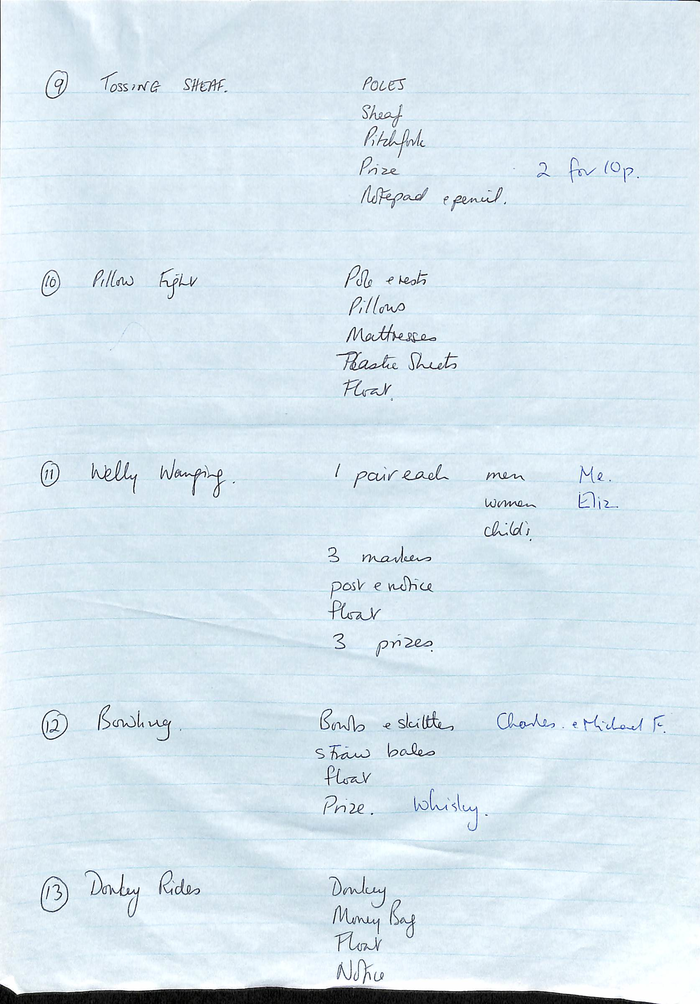 9 TOSSING SHEAF. POLES
Sheaf
Pitchfork
Prize 2 for 10p.
Notepad & pencil.
10 Pillow Fight Pole & rests
Pillows
Mattresses
Plastic Sheets
Float.
11 Welly Wanging. 1 pair each men Me.
women Eliz.
child's
3 markers
post & notice
float
3 prizes.
12 Bowling. Bowls & skittles Charles. & Michael F.
straw bales
float
Prize. Whisky.
13 Donkey Rides Donkey
Money Bag
Float
Notice